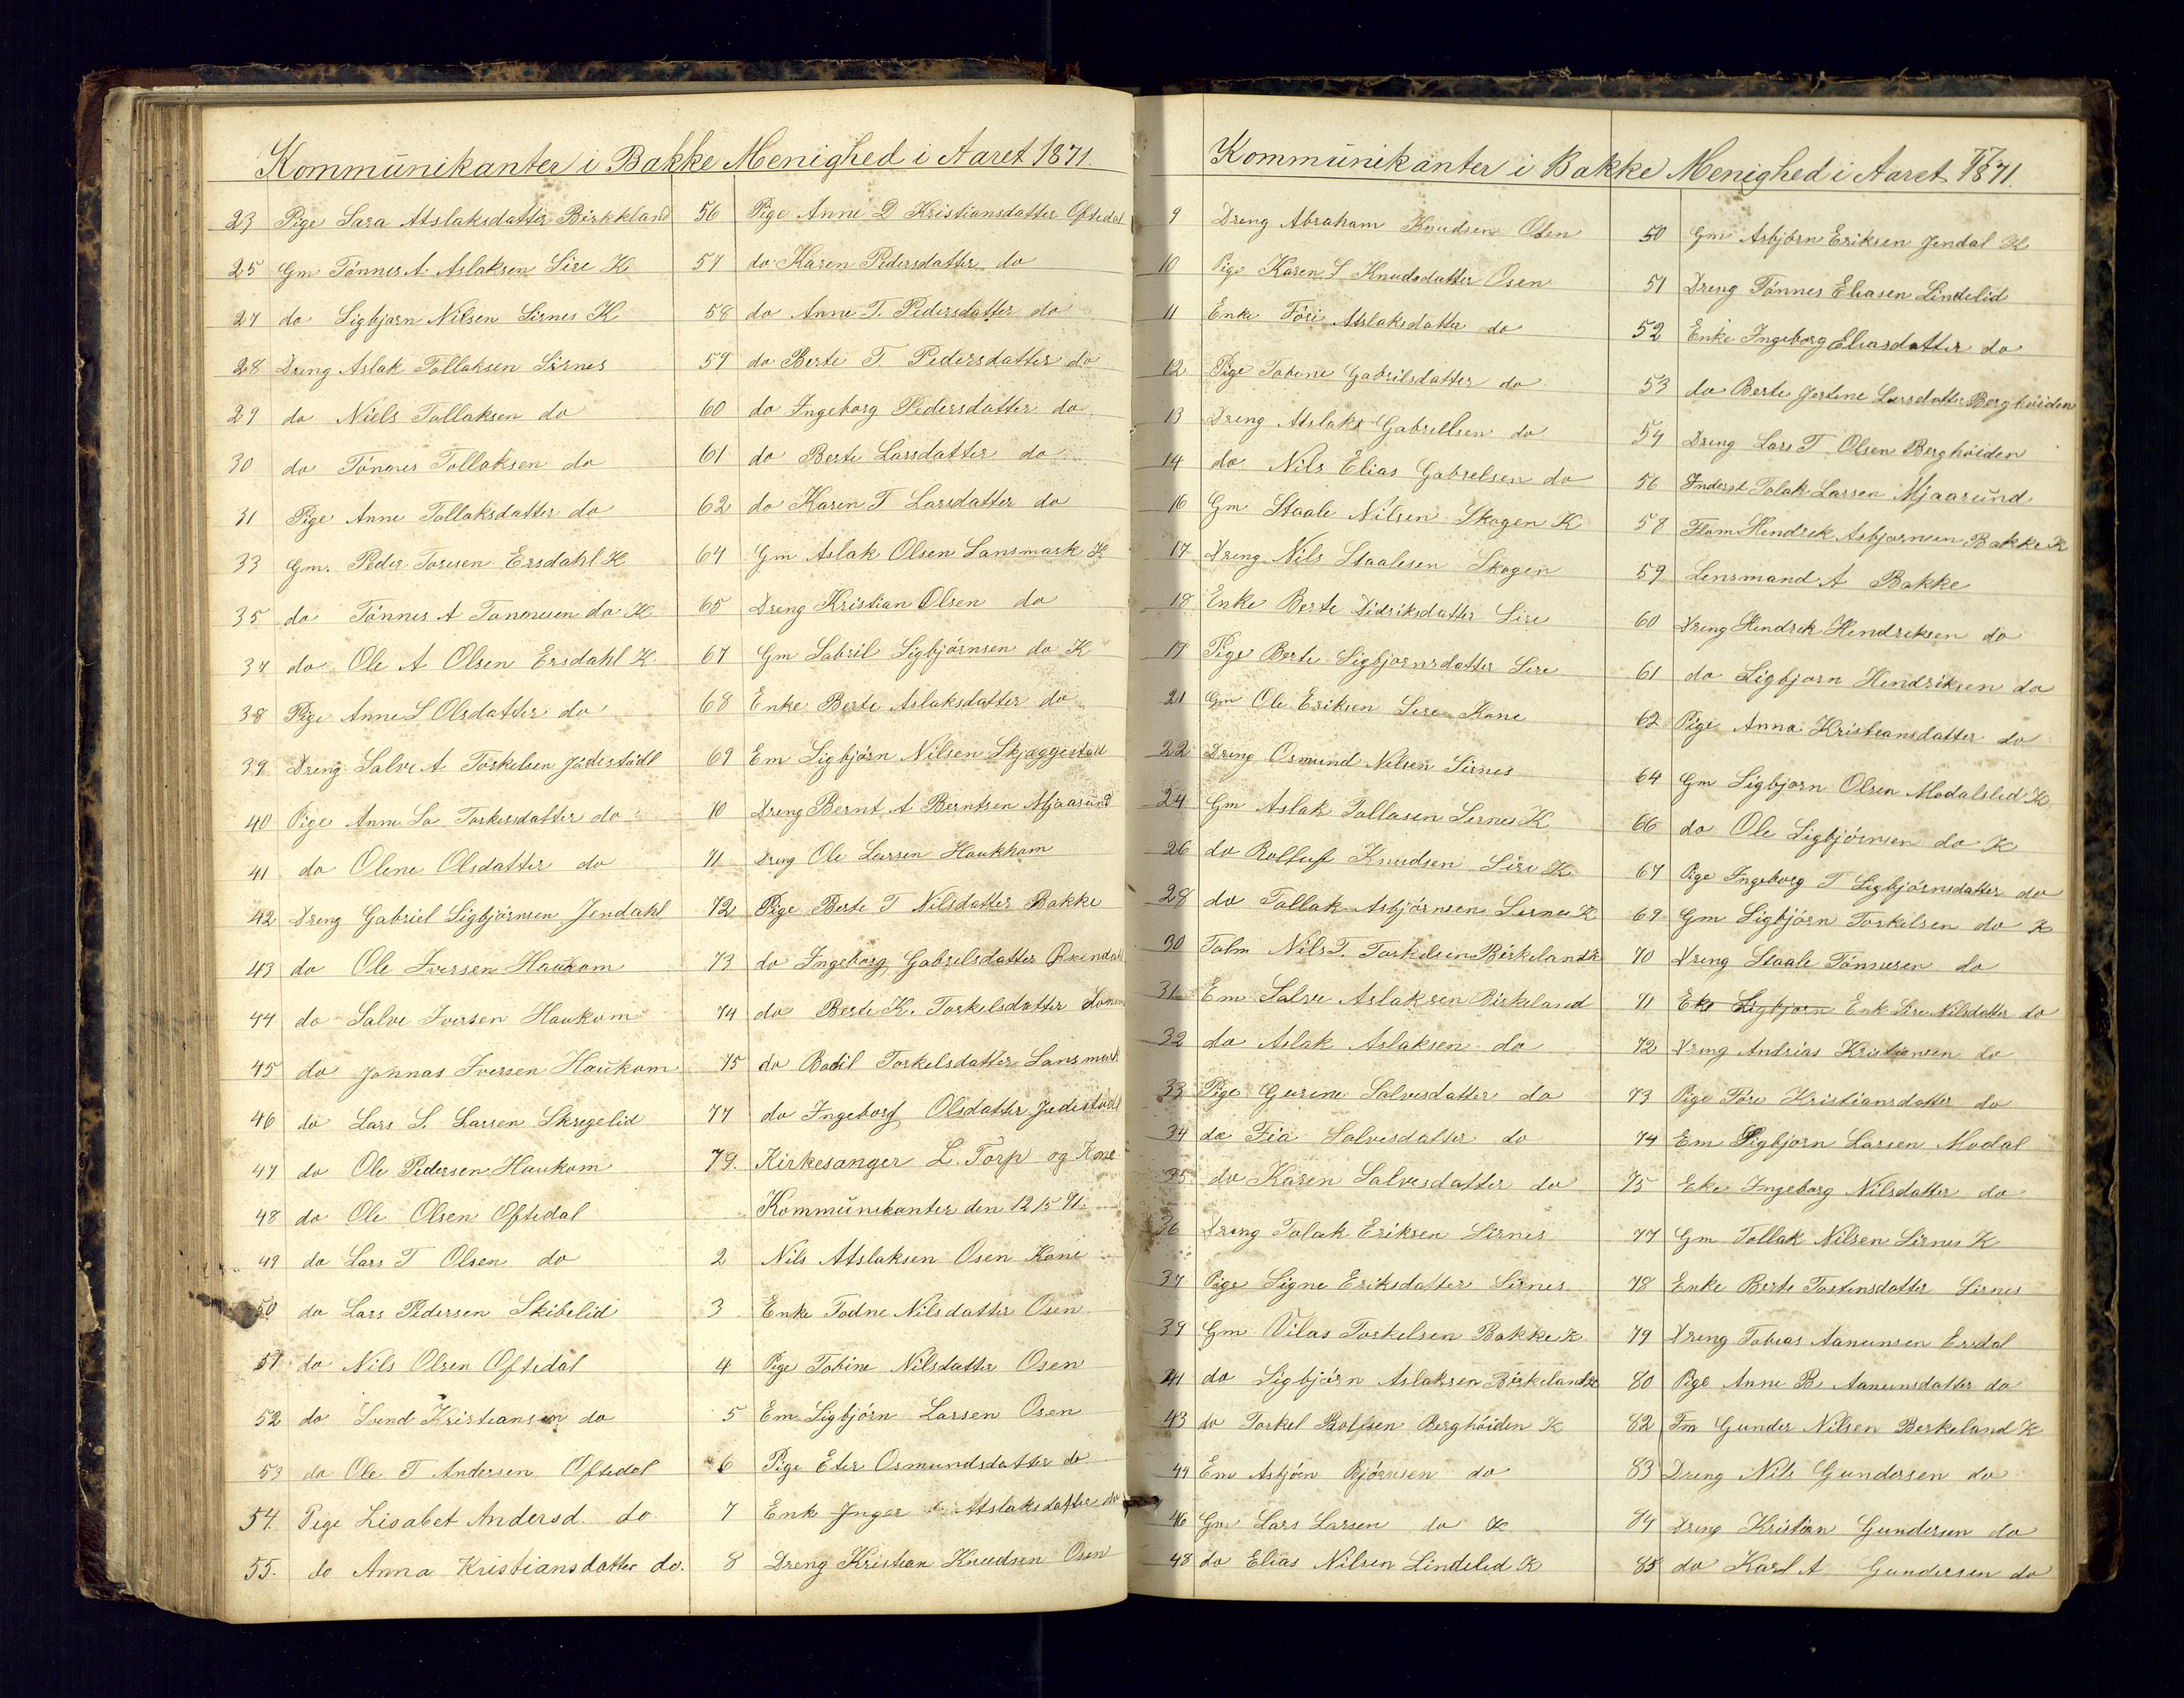 Kommunikanter i Bakke Menighed i Aaret 1871.
23 Pige Sara Atslaksdatter Birkkland
25 Gm Tönnes A. Aslaksen Sire K
27 do Sigbjørn Nilsen Sirnes K
28 Dreng Aslak Tollaksen Sirnes
29 do Niels Tollaksen do
30 do Tönnes Tollaksen do
31 Pige Anne Tollaksdatter do
33 Gm. Peder Torsen Ersdahl K
35 do Tönnes A Tönnesen do K
37 do Ole A Olsen Ersdahl K.
38 Pige Anne S Olsdatter do
39 Dreng Salve A Torkelsen Jödestödl
40 Pige Anne Torkelsdatter do
41 do Olene Olsdatter do
42 Dreng Gabriel Sigbjörnsen Jendahl
43 do Ole Iversen Haukom
44 do Salve Iversen Haukom
45 do Jonnas Iversen Haukom
46 do Lars S. Larsen Skregelid
47 do Ole Pedersen Haukom
48 do Ole Olsen Oftedal
49 do Lars T Olsen do
50 do Lars Pedersen Skibelid
51 do Nils Olsen Oftedal
52 do Svend Kristiansen do
53 do Ole T Andersen Oftedal
54. Pige Lisabet Andersd. do
55. do Anna Kristiansdatter do.
56 Pige Anne D Kristiansdatter Oftedal
57 do Karen Pedersdatter do
58 do Anne T. Pedersdatter do
59 do Berte T. Pedersdatter do
60 do Ingeborg Pedersdatter do
61 do Berte Larsdatter do
62 do Karen T Larsdatter do
64 Gm Aslak Olsen Lansmark K
65 Dreng Kristian Olsen do
67 Gm Gabril Sigbjörnsen do K
68 Enke Berte Aslaksdatter do
69 Em Sigbjörn Nilsen Skjæggestad
70 Dreng Bernt A Berntsen Mjaasund
71 Dreng Ole Larsen Haukhom
72 Pige Berte T Nilsdatter Bakke
73 do Ingeborg Gabrelsdatter
74 do Berte K. Torkelsdatter
75 do Bodil Torkelsdatter Lansmark
77 do Ingeborg Olsdatter Jödestödl
79. Kirkesanger L. Torp og Kone
Kommunikanter den 12/5 71.
2 Nils Atslaksen Osen Kone
3 Enke Todne Nilsdatter Osen
4 Pige Tobine Nilsdatter Osen
5 Em Sigbjörn Larsen Osen
6 Pige Eter Osmundsdatter do
7 Enk Inger Atslaksdatter do
8 Dreng Kristian Knudsen Osen
77
Kommunikanter i Bakke Menighed i Aaret 1871.
9 Dreng Abraham Knudsen Osen
10 Pige Karen S Knudsdatter Osen
11 Enke Töri Atslaksdatter do
12 Pige Tobine Gabrilsdatter do
13 Dreng Atslaks Gabrilsen do
14 do Nils Elias Gabrelsen do
16 Gm Staale Nilsen Skogen K
17 Dreng Nils Staalesen Skogen
18 Enke Berte Didriksdatter Sire
19 Pige Berte Sigbjørnsdatter Sire
21 Gm Ole Eriksen Sire Kone
22 Dreng Osmund Nilsen Sirnes
24 Gm Aslak Tollasen Sirnes K
26 do Knudsen Sire K
28 do Tollak Asbjörnsen Sirnes K
30 Nils T. Torkelsen Birkeland K
31 Em Salve Aslaksen Birkeland
32 do Aslak Aslaksen do
33 Pige Gurine Salvesdatter do
34 do Fia Salvesdatter do
35 do Karen Salvesdatter do
36 Dreng Tolak Eriksen Sirnes
37 Pige Signe Eriksdatter Sirnes
39 Gm Torkelsen Bakke K
41 do Sigbjörn Aslaksen Birkeland K
43 do Torkel Rolfsen Berghöiden K
44 Em Asbjörn Bjørnsen do
46 Gm Lars Larsen do K
48 do Elias Nilsen Lindelid K
50 Gm Asbjörn Eriksen Jendal K
51 Dreng Tönnes Eliasen Lindelid
52 Enke Ingeborg Eliasdatter do
53 do Berte Jertine Larsdatter Berghöiden
54 Dreng Lars T Olsen Berghöiden
56 Inderst Tolak Larsen Mjaasund
58 Hendrek Asbjørnsen Bakke K
59 Lensmand A Bakke
60 Dreng Hendrek Hendreksen do
61 do Sigbjørn Hendriksen do
62 Pige Anna Kristiansdatter do
64 Gm Sigbjørn Olsen Modalslid K
66 do Ole Sigbjörnsen do K
67 Pige Ingeborg T Sigbjörnsdatter do
69 Gm Sigbjörn Torkilsen do K
70 Dreng Staale Tönnesen do
71 Eke Sigbjørn Enk Sire Nilsdatter do
72 Dreng Andrias Kristiansen do
73 Pige Töre Kristiansdatter do
74 Em Sigbjørn Larsen Modal
75 Eke Ingeborg Nilsdatter do
77 Gm Tollak Nilsen Sirnes K
78 Enke Berte Tostensdatter Sirnes
79 Dreng Tobias Aanensen Ersdal
80 Pige Anne B Aanensdatter do
82 Fm Gunder Nilsen Berkeland K
83 Dreng Nils Gundersen do
84 Dreng Kristian Gundersen do
85 do Karl A Gundersen do